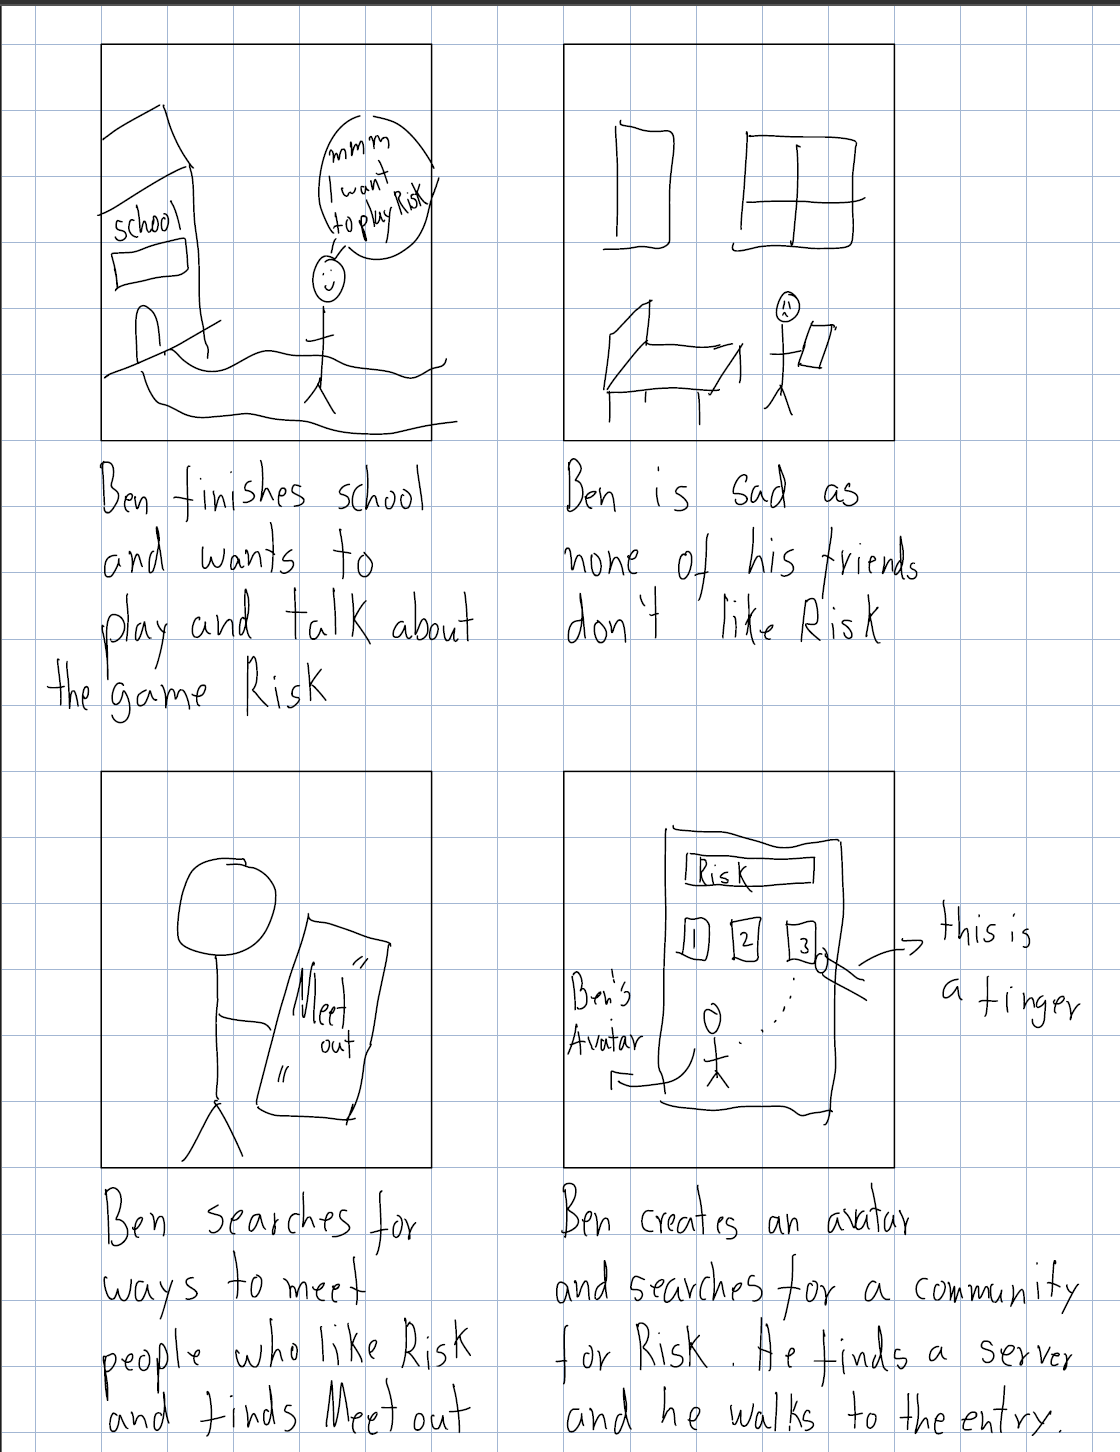 mmm
I want
to play Risk
school
Ben finishes school
and wants to
play and talk about
the game Risk
Ben is sad as
none of his friends
don't like Risk
"
Meet
out
"
Ben searches for
ways to meet
people who like Risk
and finds Meet out
Risk
1 2 3
this is
a finger
Ben's
Avatar
Ben creates an avatar
and searches for a community
for Risk. He finds a server
and he walks to the entry.